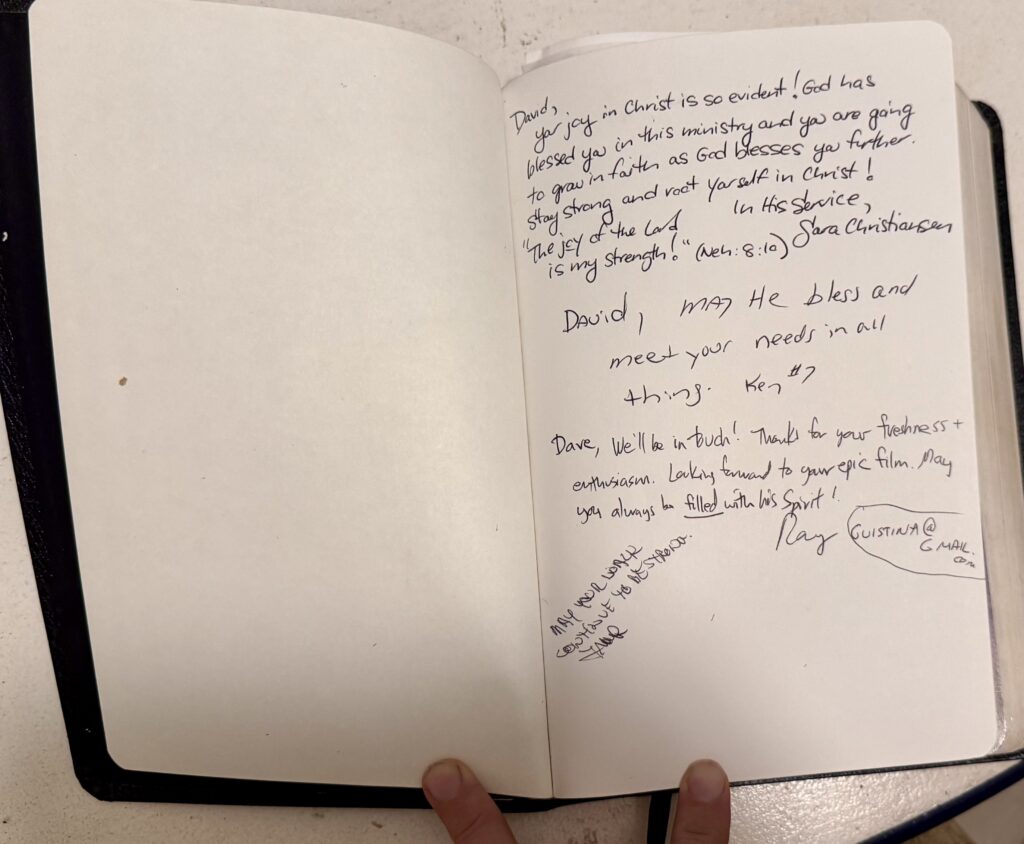 David,
your joy in Christ is so evident! God has
blessed you in this ministry and you are going
to grow in faith as God blesses you further.
Stay strong and root yourself in Christ!
In His Service,
Sara Christiansen
"The joy of the Lord
is my strength!" (Neh: 8:10)
David, may He bless and
meet your needs in all
thing. Ken #7
Dave, We'll be in touch! Thanks for your freshness +
enthusiasm. Looking forward to your epic film. May
you always be filled with his Spirit!
Ray GUISTINA@
GMAIL.
com
MAY YOUR WALK
CONTINUE TO BE STRONG.